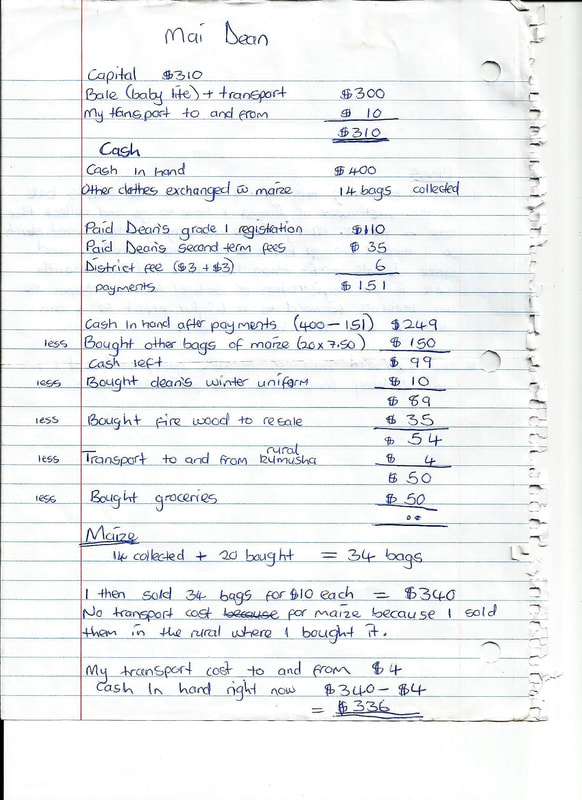 Mai Dean
Capital $310
Bale (baby lite) + transport $300
My transport to and from $ 10
$310
Cash
Cash in hand $400
Other clothes exchanged w maize 14 bags collected
Paid Dean's grade 1 registration $110
Paid Dean's second term fees $ 35
District fee ($3 + $3) 6
payments $151
Cash in hand after payments (400 - 151) $249
less Bought other bags of maize (20 x 7.50) $ 150
Cash left $ 99
less Bought dean's winter uniform $ 10
$ 89
less Bought fire wood to resale $ 35
$ 54
rural
less Transport to and from kumusha $ 4
$ 50
less Bought groceries $ 50
..
Maize
14 collected + 20 bought = 34 bags
I then sold 34 bags for $10 each = $340
No transport cost because for maize because I sold
them in the rural where I bought it.
My transport cost to and from $ 4
Cash In hand right now $340 - $4
= $336